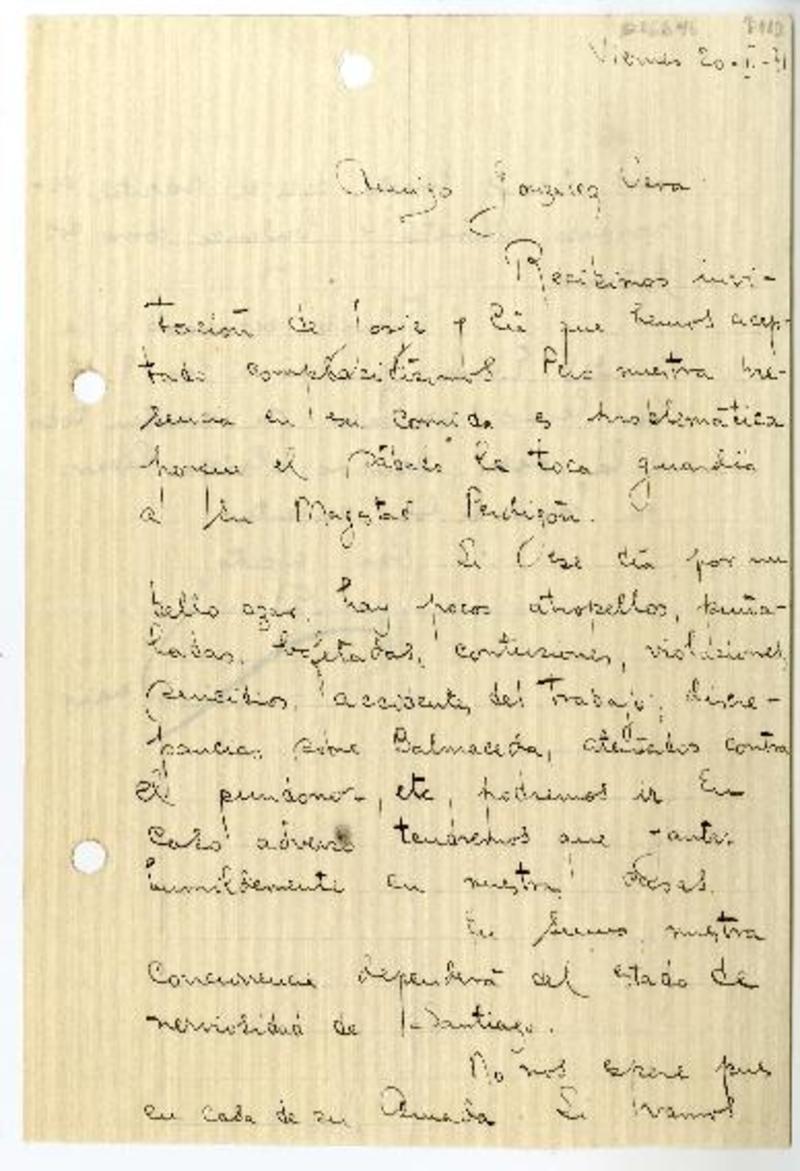 Viernes 20-I-31
Amigo González Vera
Recibimos invi-
tación de José y que hemos acep-
tado complacidísimos. Pero nuestra pre-
sencia en su comida es problemática
porque el sábado le toca guardia
a Su Magestad Perdigón.
Si ese día por un
bello azar, hay pocos atropellos, puña-
ladas, bofetadas, contusiones, violaciones,
accidentes del trabajo, discre-
pancias sobre Balmaceda, atentados contra
el pundonor, etc, podremos ir. En
caso adverso tendremos que yantar
humildemente en nuestra
En suma, nuestra
concurrencia dependerá del estado de
nerviosidad de Santiago.
No nos espere pues
en casa de su Amada. Si vamos